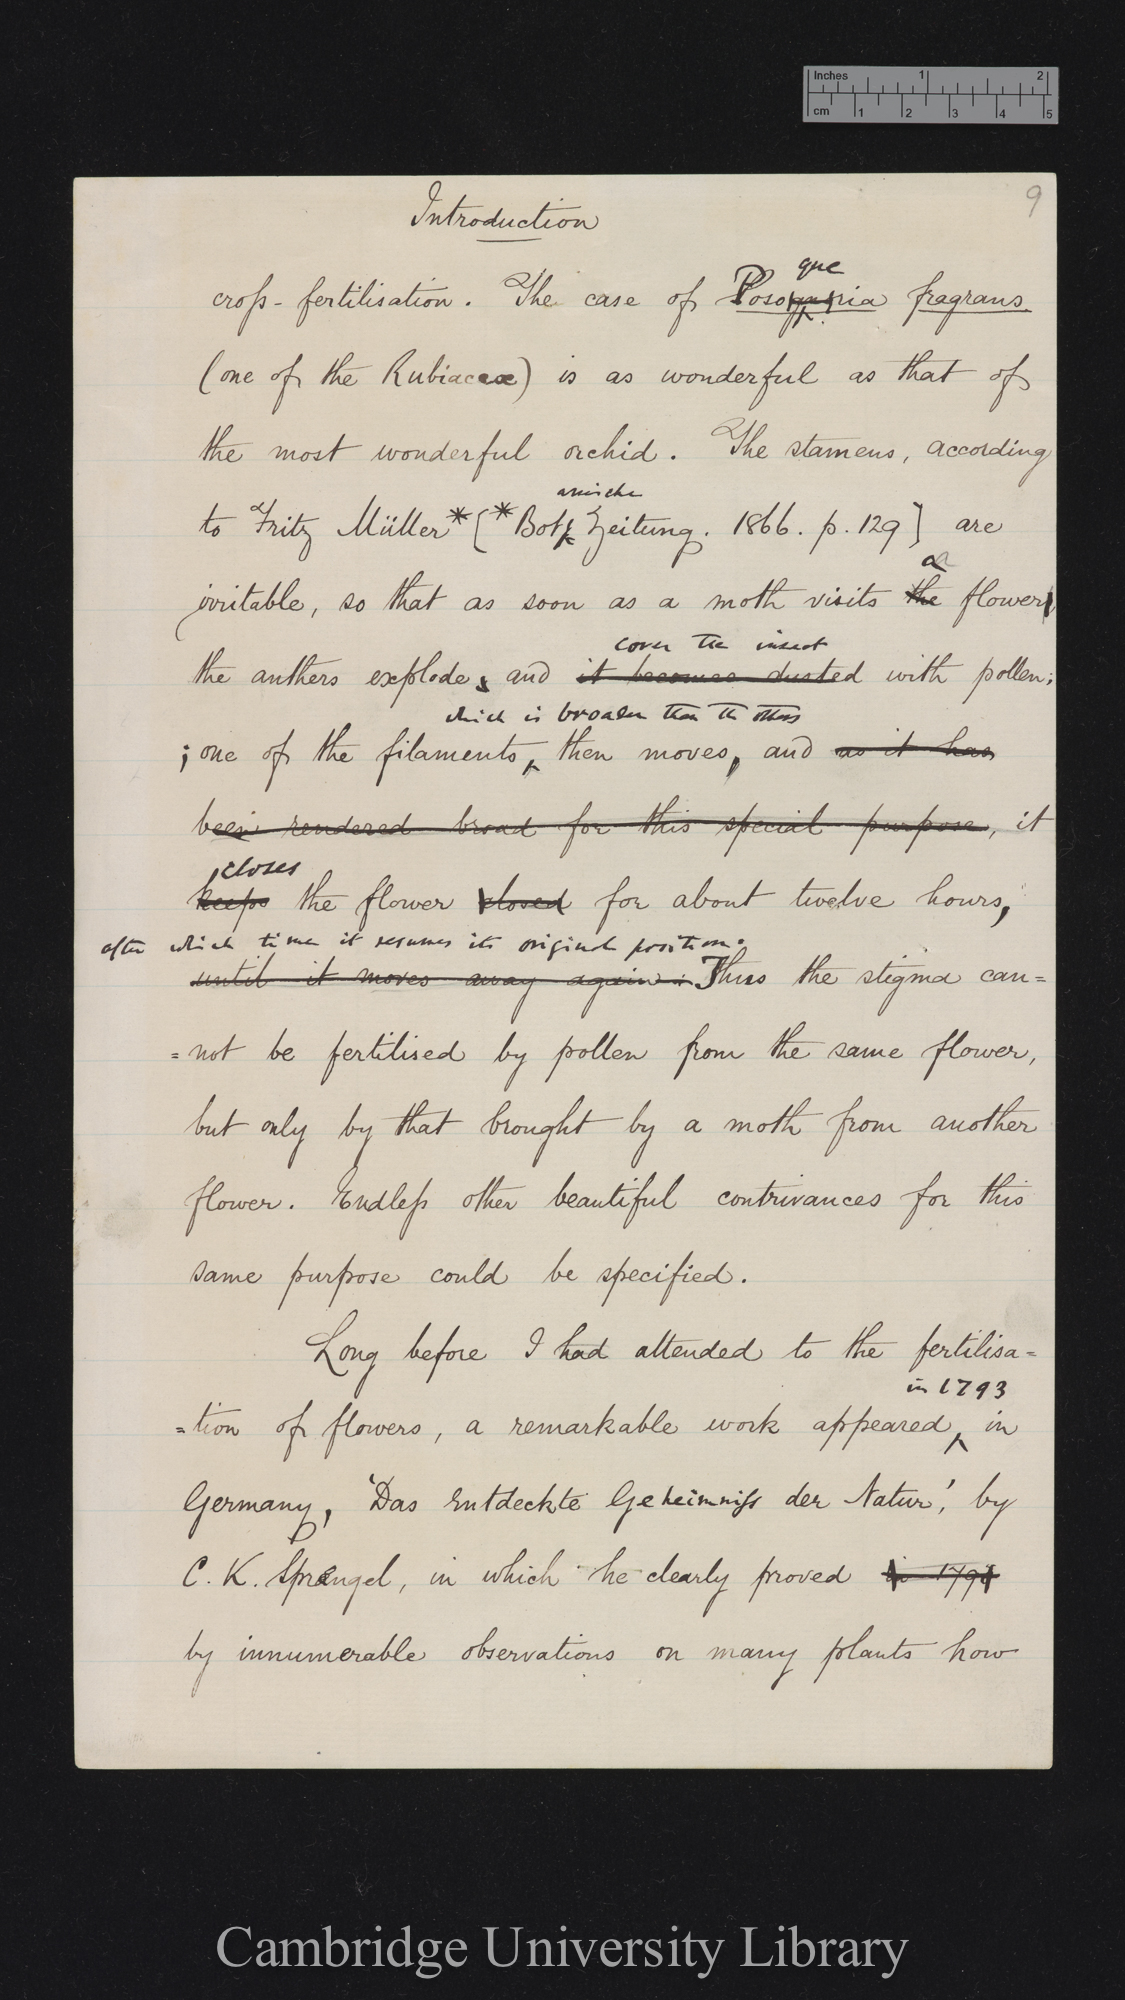 Inches 1 2
cm 1 2 3 4 5
9
Introduction
que
cross-fertilisation. The case of Posoqueria fragrans
(one of the Rubiaceæ) is as wonderful as that of
the most wonderful orchid. The stamens, according
anische
to Fritz Müller* [*Bot. Zeitung. 1866. p. 129] are
a
irritable, so that as soon as a moth visits the flower
cover the insect
the anthers explode, and it becomes dusted with pollen;
which is broader than the others
; one of the filaments, then moves, and as it has
been rendered broad for this special purpose, it
closes
keeps the flower closed for about twelve hours,
after which time it resumes its original position.
until it moves away again. Thus the stigma can=
=not be fertilised by pollen from the same flower,
but only by that brought by a moth from another
flower. Endless other beautiful contrivances for this
same purpose could be specified.
Long before I had attended to the fertilisa=
in 1793
=tion of flowers, a remarkable work appeared in
Germany, 'Das Entdeckte Geheimniss der Natur', by
C. K. Sprengel, in which he clearly proved in
by innumerable observations on many plants how
Cambridge University Library